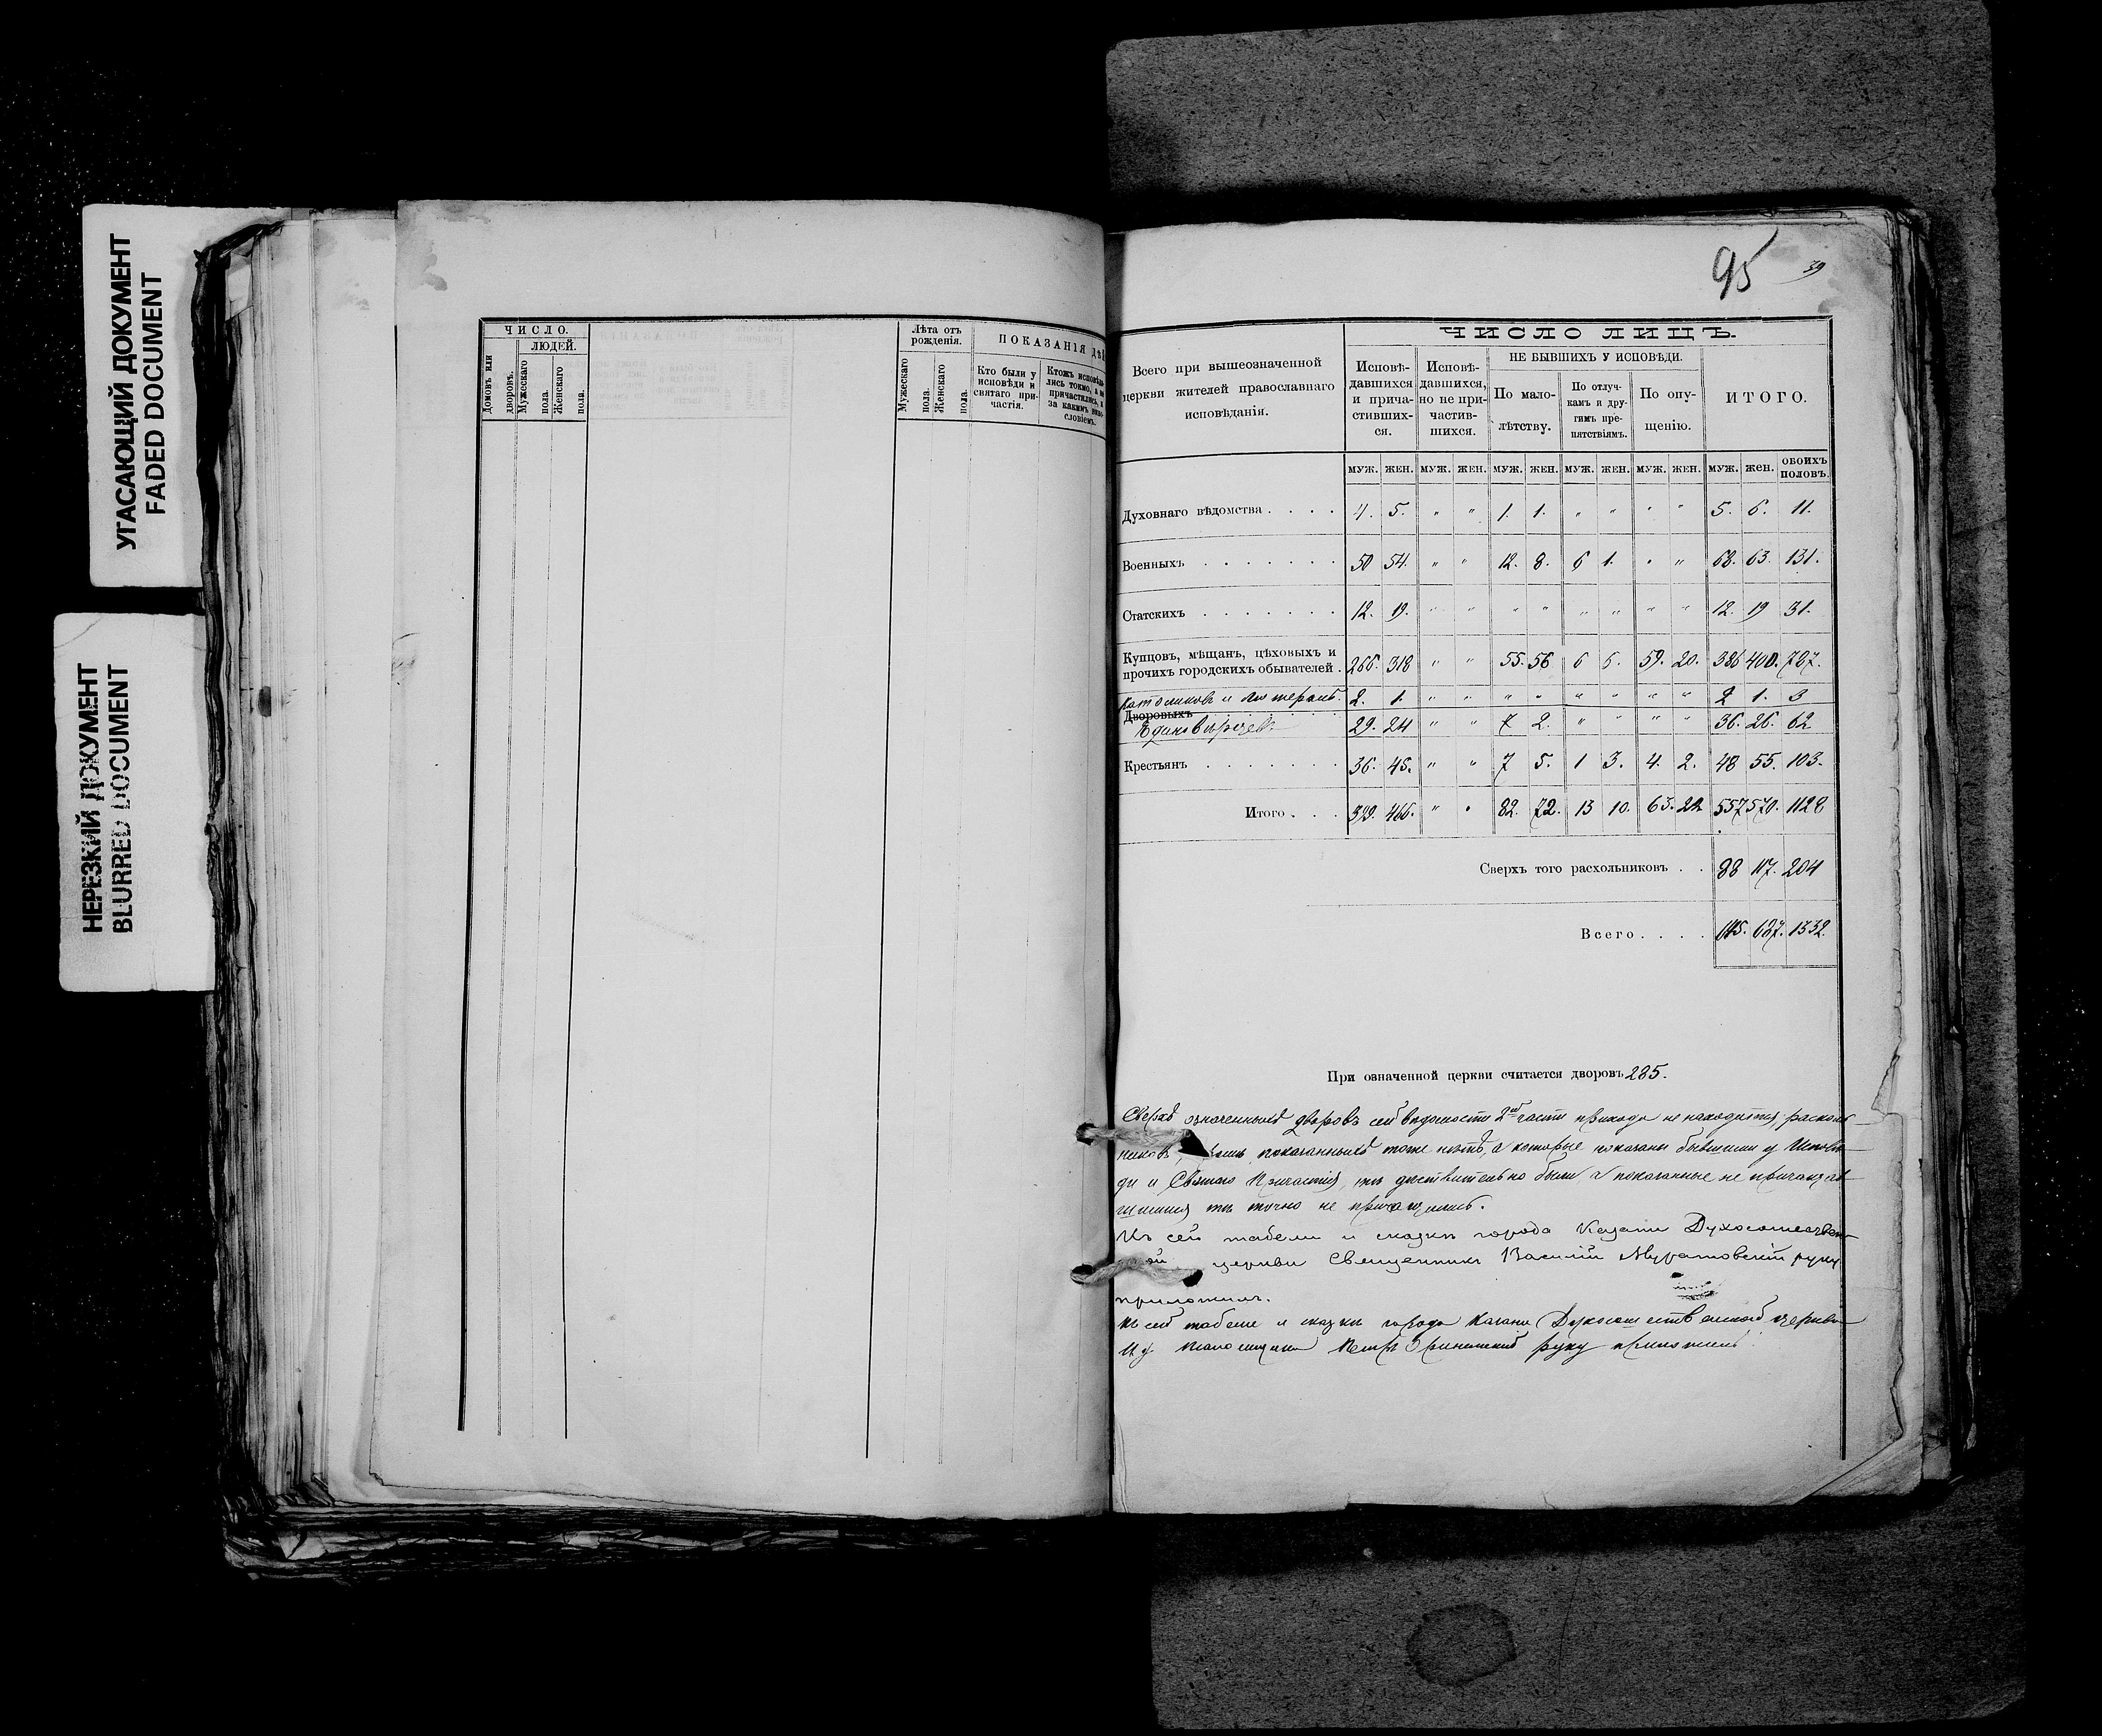 УГАСАЮЩИЙ ДОКУМЕНТ
FADED DOCUMENT
НЕРЕЗКИЙ ДОКУМЕНТ
BLURRED DOCUMENT
ЧИСЛО.
ЛЮДЕЙ.
Домовъ или дворовъ.
Мужескаго пола.
Женскаго пола.
Лѣта отъ рожденія.
Мужескаго пола.
Женскаго пола.
ПОКАЗАНІЯ
Кто были у
исповѣди и
святаго при-
частія.
Ктожъ
лись токмо, а
причастились,
за какимъ
словіемъ.
95 39
Всего при вышеозначенной
церкви жителей православнаго
исповѣданія.
ЧИСЛО ЛИЦЪ.
Исповѣ-
давшихся
и прича-
стивших-
ся.
Исповѣ-
давшихся,
но не при-
частив-
шихся.
НЕ БЫВШИХЪ У ИСПОВѢДИ.
По мало-
лѣтству.
По отлуч-
камъ и дру-
гимъ пре-
пятствіямъ.
По опу-
щенію.
ИТОГО.
МУЖ. ЖЕН. МУЖ. ЖЕН. МУЖ. ЖЕН. МУЖ. ЖЕН. МУЖ. ЖЕН. МУЖ. ЖЕН. ОБОИХЪ ПОЛОВЪ.
Духовнаго вѣдомства . . . . 4. 5. " " 1. 1. " " " " 5. 6. 11.
Военныхъ . . . . . . . 50 54. " " 12. 8. 6 1. " " 68. 63. 131.
Статскихъ . . . . . . . 12. 19. " " " " " " " " 12. 19 31.
Купцовъ, мѣщанъ, цѣховыхъ и
прочихъ городскихъ обывателей . 266. 318 " " 55. 56 6 6. 59. 20. 386 400. 787.
Католиковъ и лютеранъ. 2. 1. " " " " " " " " 2 1. 3
Дворовыхъ
Единовѣрцевъ. 29. 24 " " 7 2. " " " " 36. 26. 62
Крестьянъ . . . . . . . 36. 45. " " 7 5. 1 3. 4. 2. 48 55. 103.
Итого . . . 399. 466. " " 82. 72. 13 10. 63. 22 557 570. 1128
Сверхъ того расхольниковъ . . 88 117. 204
Всего . . . . 645. 687. 1332.
При означенной церкви считается дворовъ 285.
Сверхъ означенныхъ дворовъ сей ведомости 2ой части прихода не находится; расколь-
никовъ показанныхъ тоже нѣтъ, а которые показаны бывшими у Исповѣ-
ди и Святаго Причастія, тѣ действительно были а показанные не причащав-
шимися тѣ точно не причащались.
Къ сей табели и сказкѣ города Казани Духосошествен-
ной церкви Священникъ Василій руку
приложилъ.
Къ сей табели и сказкѣ города Казани Духосошественской церкви
Псаломщика Петръ руку приложилъ.